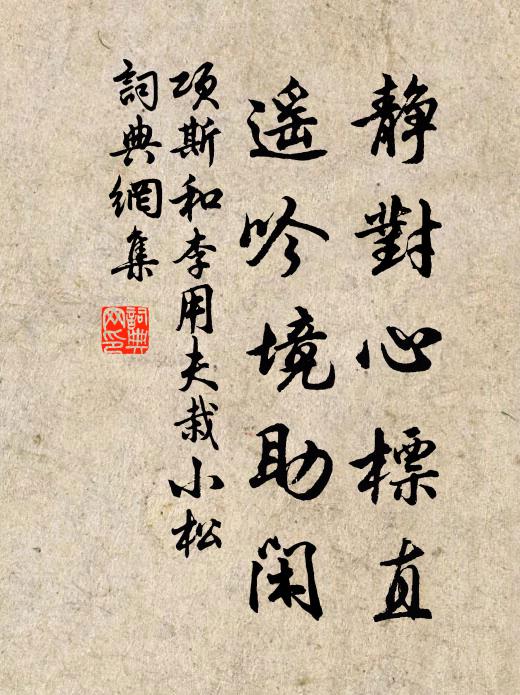 靜對心標直
遥吟境助閑
項斯和李用夫栽小松
詞典網集
詞典
网印